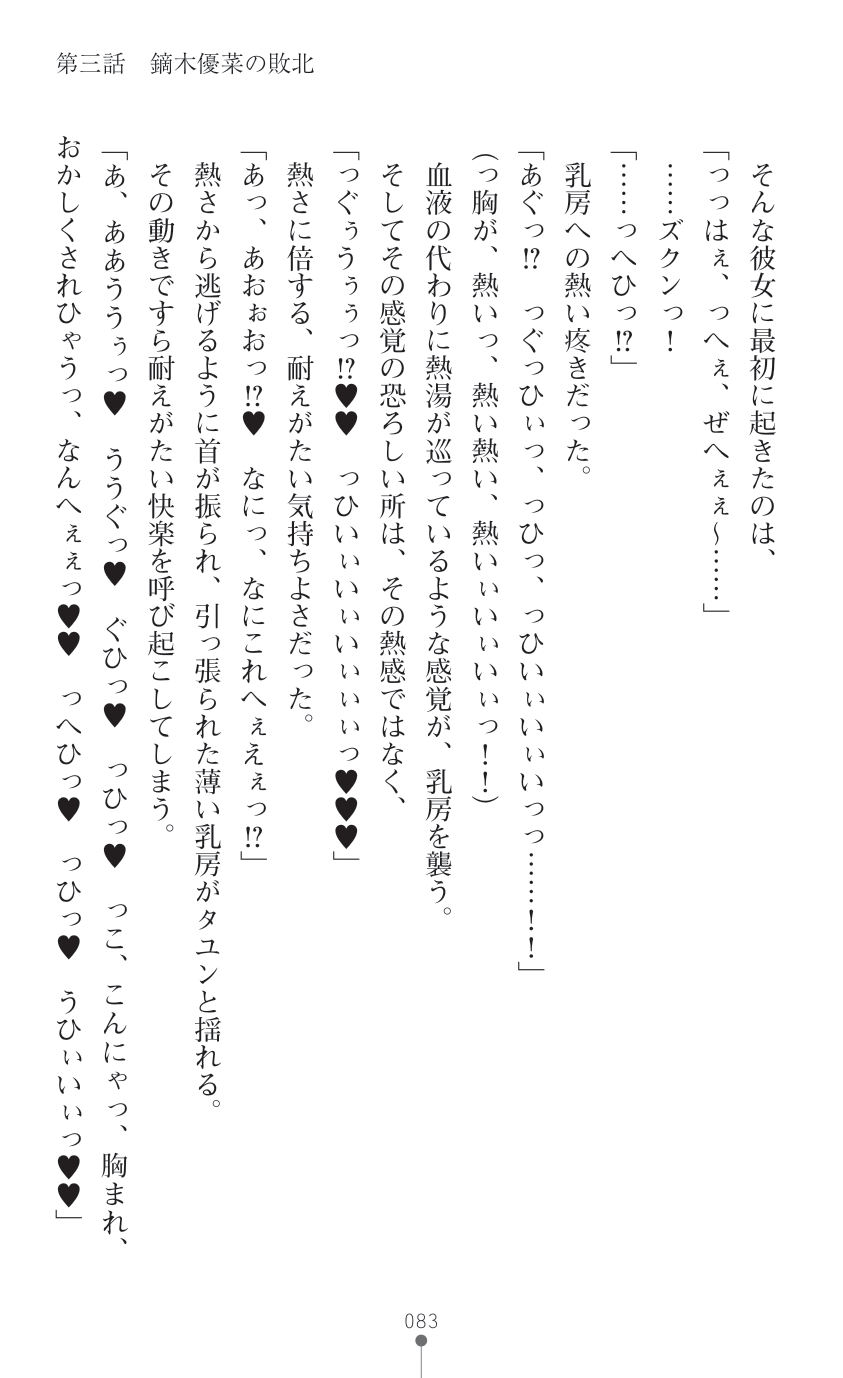 第三話　鏑木優菜の敗北
そんな彼女に最初に起きたのは、
「っっはぇ、っへぇ、ぜへぇぇ～……」
……ズクンっ！
「……っへひっ!?」
乳房への熱い疼きだった。
「あぐっ!?　っぐっひぃっ、っひっ、っひいぃいぃいっっ……！！」
(っ胸が、熱いっ、熱い熱い、熱いぃいぃいぃっ！！)
血液の代わりに熱湯が巡っているような感覚が、乳房を襲う。
そしてその感覚の恐ろしい所は、その熱感ではなく、
「っぐぅうぅぅっ!?♥♥　っひいぃいぃいぃぃぃっ♥♥♥」
熱さに倍する、耐えがたい気持ちよさだった。
「あっ、あおぉおっ!?♥　なにっ、なにこれへぇえぇっ!?」
熱さから逃げるように首が振られ、引っ張られた薄い乳房がタユンと揺れる。
その動きですら耐えがたい快楽を呼び起こしてしまう。
「あ、ああううぅっ♥　ううぐっ♥　ぐひっ♥　っひっ♥　っこ、こんにゃっ、胸まれ、
おかしくされひゃうっ、なんへぇぇっ♥♥　っへひっ♥　っひっ♥　うひぃいぃっ♥♥」
083